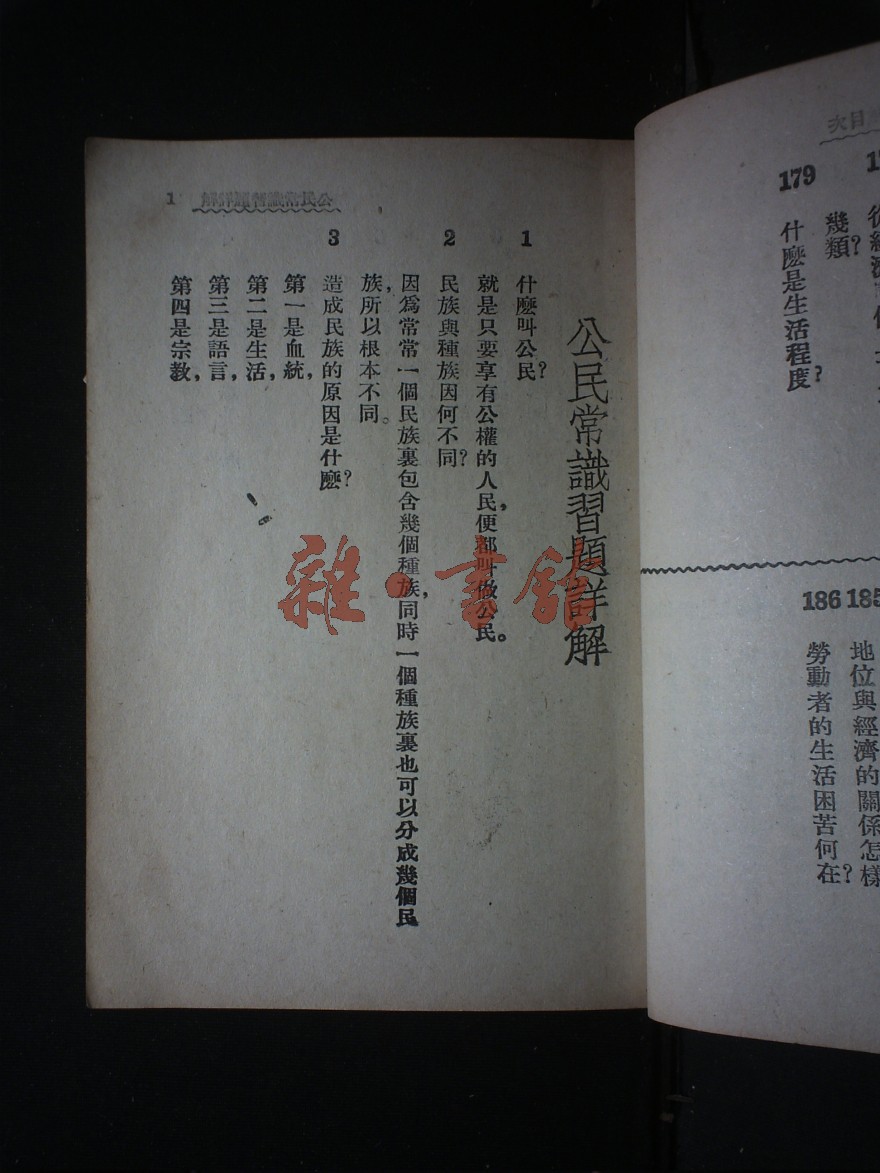 目次
幾類？
179
什麽是生活程度？
185
地位與經濟的關係怎樣
186
勞動者的生活困苦何在？
公民常識習題詳解
1
公民常識習題詳解
1
什麽叫公民？
就是只要享有公權的人民，便都叫做公民。
2
民族與種族因何不同？
因爲常常一個民族裏包含幾個種族，同時一個種族裏也可以分成幾個民
族，所以根本不同。
3
造成民族的原因是什麽？
第一是血統，
第二是生活，
第三是語言，
第四是宗教，
雜·書館